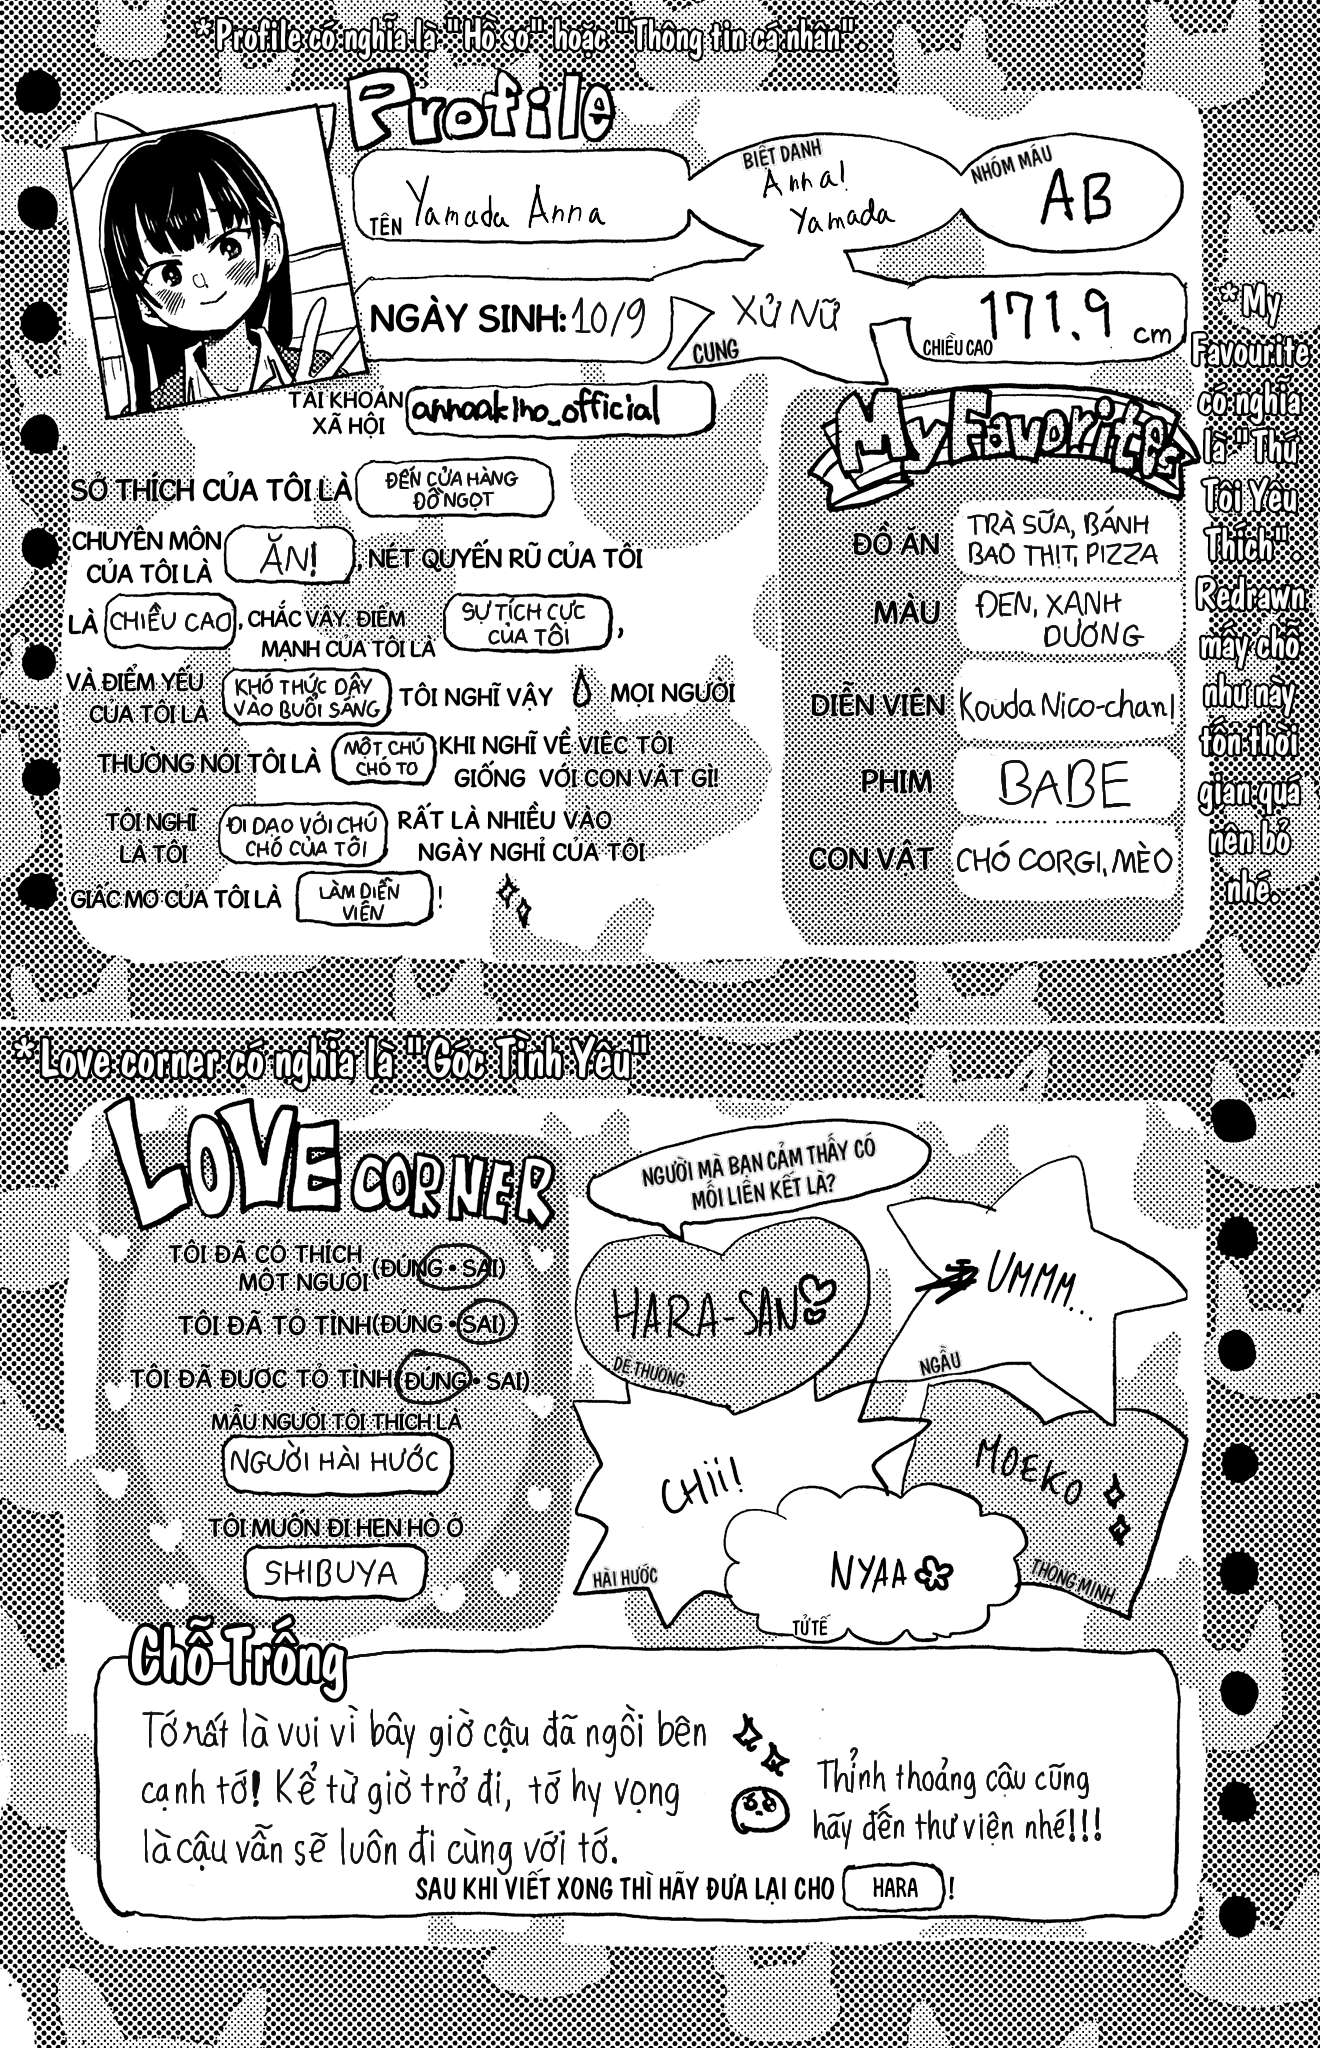 *Profile có nghĩa là "Hồ sơ" hoặc "Thông tin cá nhân".
Profile
TÊN Yamada Anna
BIỆT DANH
Anna!
Yamada
NHÓM MÁU
AB
NGÀY SINH: 10/9
XỬ NỮ
CUNG
171.9 cm
CHIỀU CAO
TÀI KHOẢN
XÃ HỘI
annaakino_official
SỞ THÍCH CỦA TÔI LÀ
ĐẾN CỬA HÀNG
ĐỒ NGỌT
CHUYÊN MÔN
CỦA TÔI LÀ
ĂN!
, NÉT QUYẾN RŨ CỦA TÔI
LÀ CHIỀU CAO, CHẮC VẬY. ĐIỂM
MẠNH CỦA TÔI LÀ
SỰ TÍCH CỰC
CỦA TÔI
,
VÀ ĐIỂM YẾU
CỦA TÔI LÀ
KHÓ THỨC DẬY
VÀO BUỔI SÁNG
TÔI NGHĨ VẬY MỌI NGƯỜI
THƯỜNG NÓI TÔI LÀ
MỘT CHÚ
CHÓ TO
KHI NGHĨ VỀ VIỆC TÔI
GIỐNG VỚI CON VẬT GÌ!
TÔI NGHĨ
LÀ TÔI
ĐI DẠO VỚI CHÚ
CHÓ CỦA TÔI
RẤT LÀ NHIỀU VÀO
NGÀY NGHỈ CỦA TÔI
GIẤC MƠ CỦA TÔI LÀ
LÀM DIỄN
VIÊN
!
My Favorites
ĐỒ ĂN
TRÀ SỮA, BÁNH
BAO THỊT, PIZZA
MÀU
ĐEN, XANH
DƯƠNG
DIỄN VIÊN
Kouda Nico-chan!
PHIM
BABE
CON VẬT
CHÓ CORGI, MÈO
*My
Favourite
có nghĩa
là "Thứ
Tôi Yêu
Thích".
Redrawn
mấy chỗ
như này
tốn thời
gian quá
nên bỏ
nhé.
*Love corner có nghĩa là "Góc Tình Yêu"
LOVE CORNER
TÔI ĐÃ CÓ THÍCH
MỘT NGƯỜI (ĐÚNG • SAI)
TÔI ĐÃ TỎ TÌNH (ĐÚNG • SAI)
TÔI ĐÃ ĐƯỢC TỎ TÌNH (ĐÚNG • SAI)
MẪU NGƯỜI TÔI THÍCH LÀ
NGƯỜI HÀI HƯỚC
TÔI MUỐN ĐI HẸN HÒ Ở
SHIBUYA
NGƯỜI MÀ BẠN CẢM THẤY CÓ
MỐI LIÊN KẾT LÀ?
HARA-SAN
DỄ THƯƠNG
UMMM...
NGẦU
CHII!
HÀI HƯỚC
MOEKO
THÔNG MINH
NYAA
TỬ TẾ
Chỗ Trống
Tớ rất là vui vì bây giờ cậu đã ngồi bên
cạnh tớ! Kể từ giờ trở đi, tớ hy vọng
là cậu vẫn sẽ luôn đi cùng với tớ.
Thỉnh thoảng cậu cũng
hãy đến thư viện nhé!!!
SAU KHI VIẾT XONG THÌ HÃY ĐƯA LẠI CHO HARA !